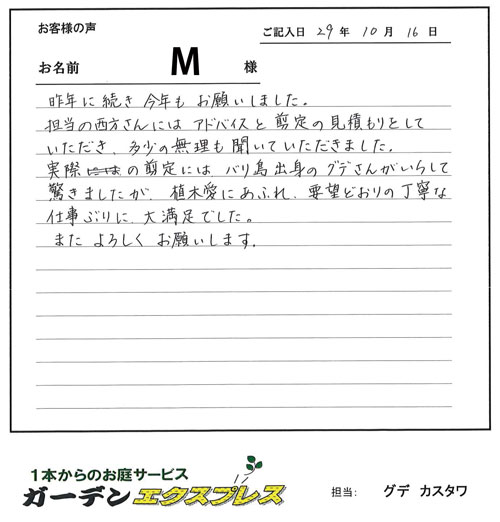 お客様の声
ご記入日 29年 10月 16日
お名前 M 様
昨年に続き今年も お願いしました。
担当の西方さんには アドバイスと剪定の見積もりとして
いただき、多少の無理も聞いていただきました。
実際の剪定には、バリ島出身のグデさんがいらして
驚きましたが、植木愛にあふれ、要望どおりの丁寧な
仕事ぶりに、大満足でした。
また よろしく お願いします。
1本からのお庭サービス
ガーデンエクスプレス
担当: グデ カスタワ